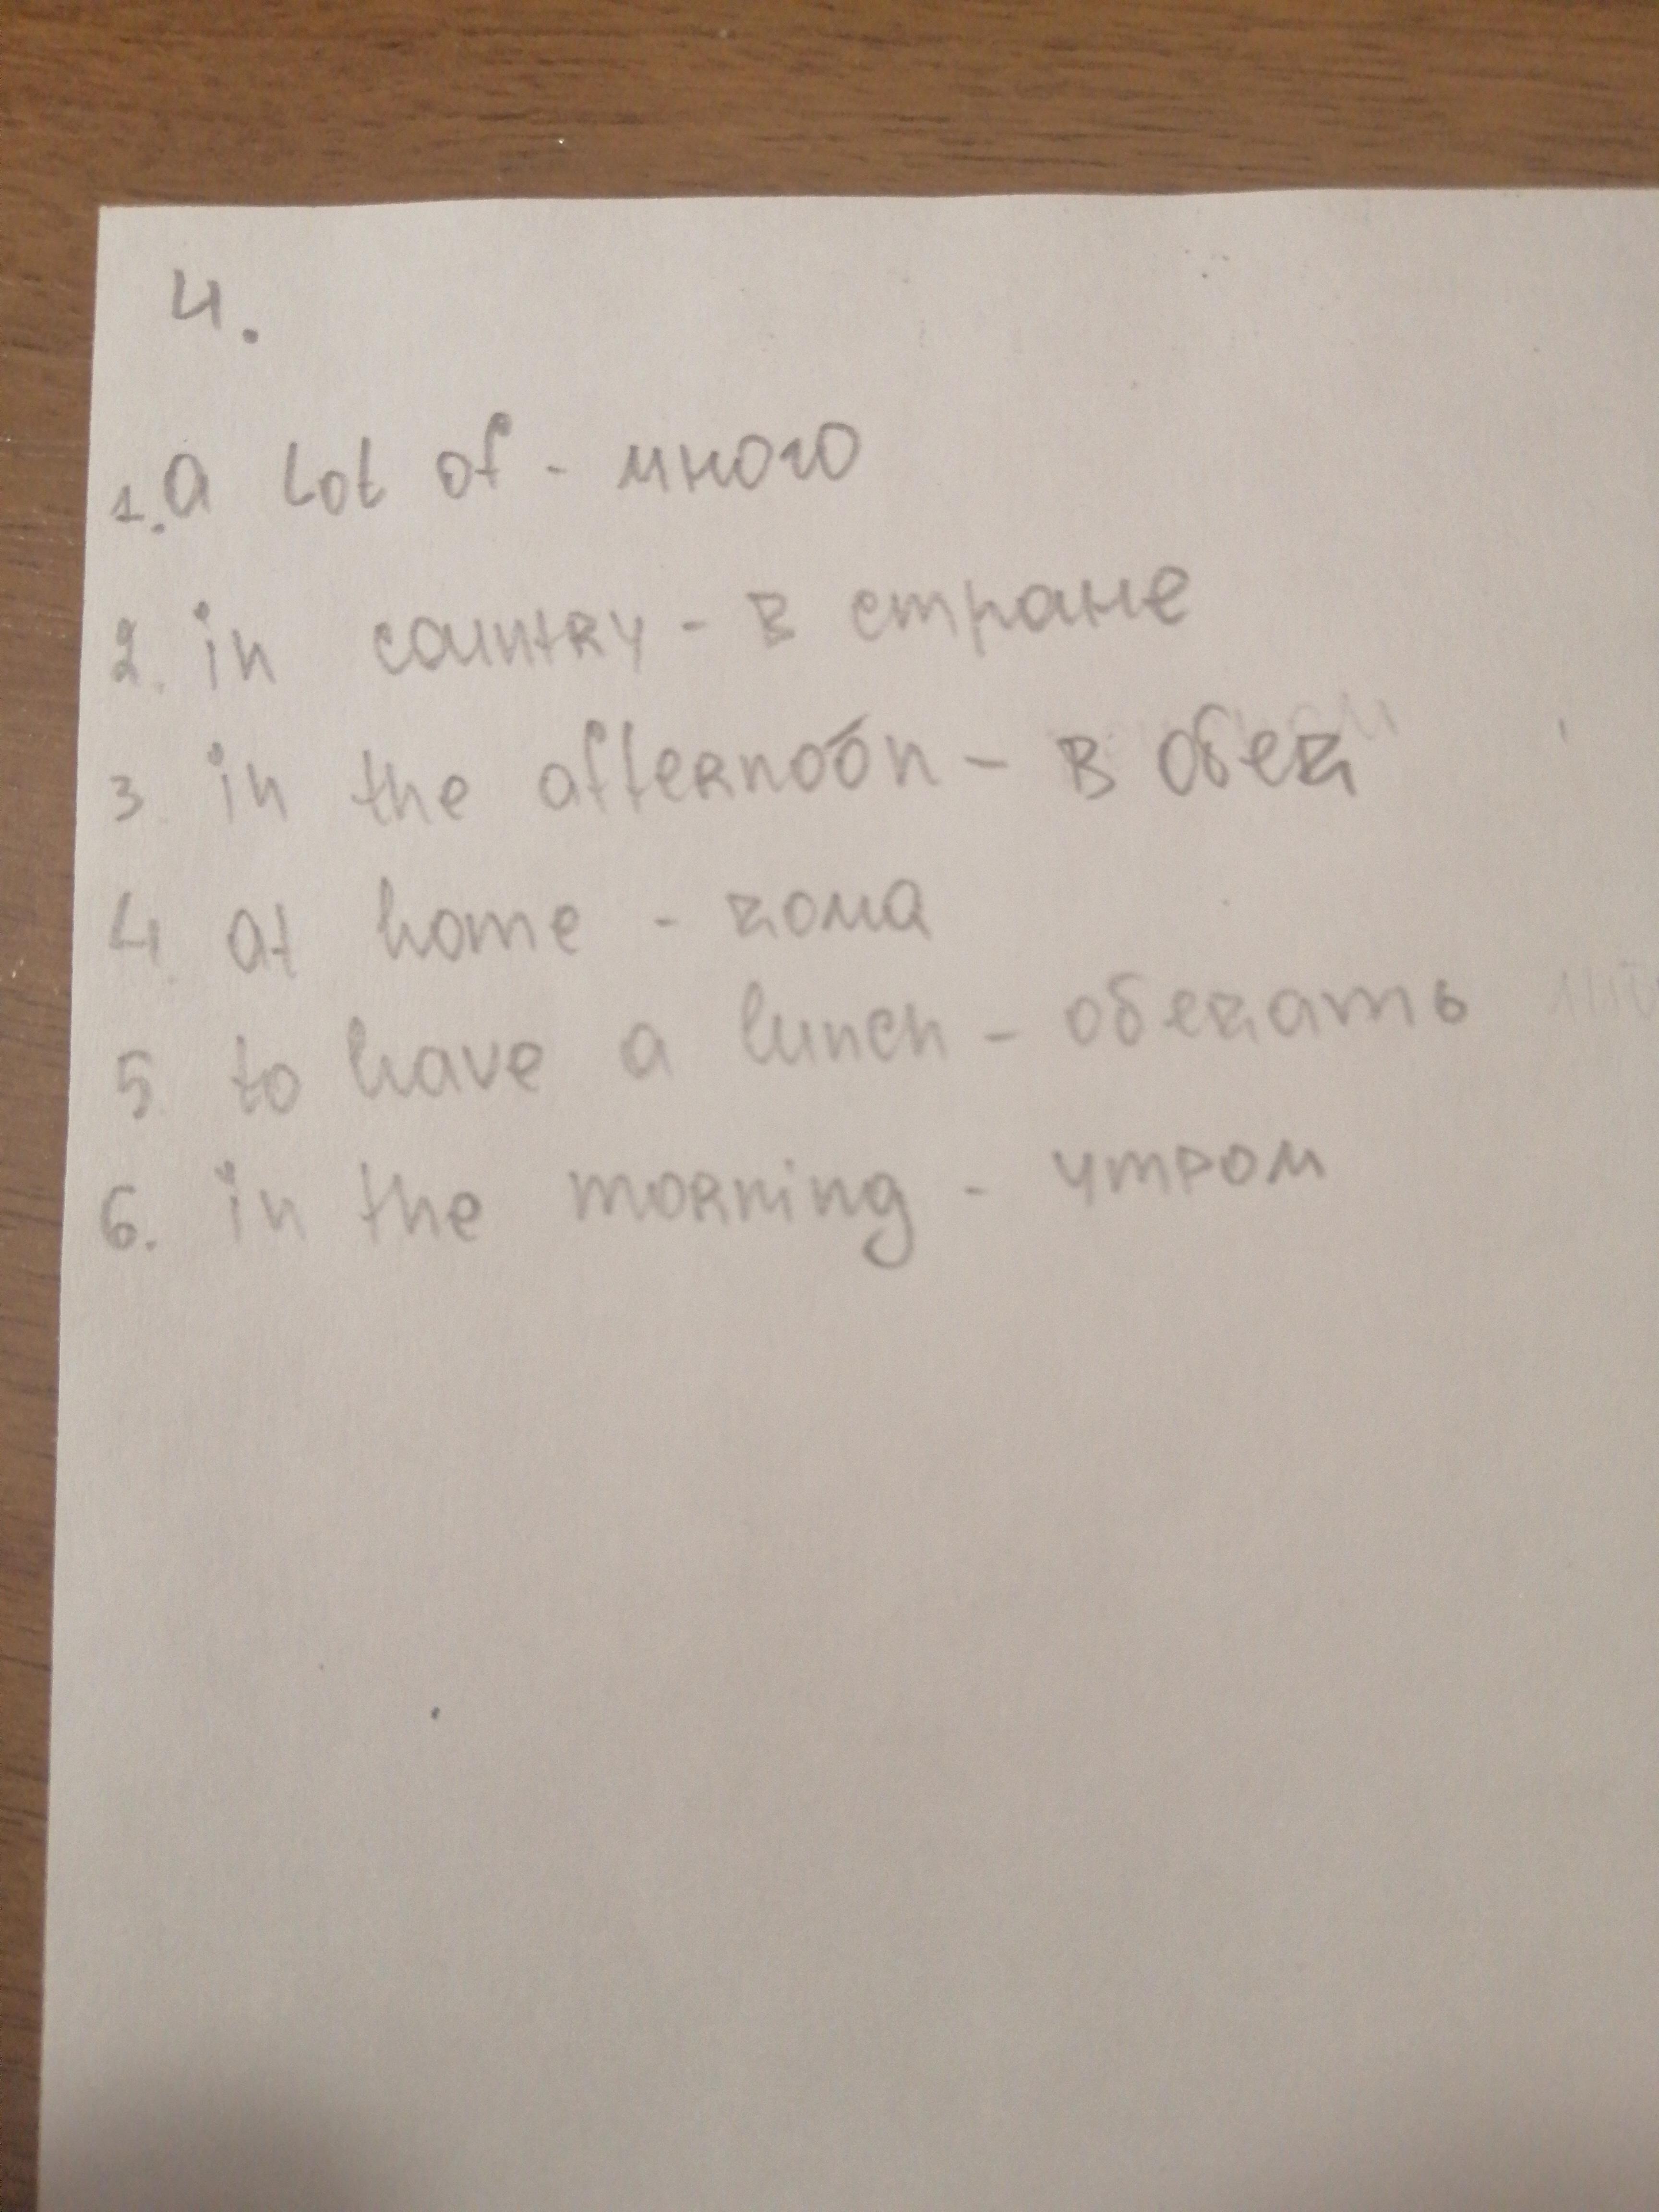 4.
1. a lot of - много
2. in country - в стране
3. in the afternoon - в обед
4. at home - дома
5. to have a lunch - обедать
6. in the morning - утром